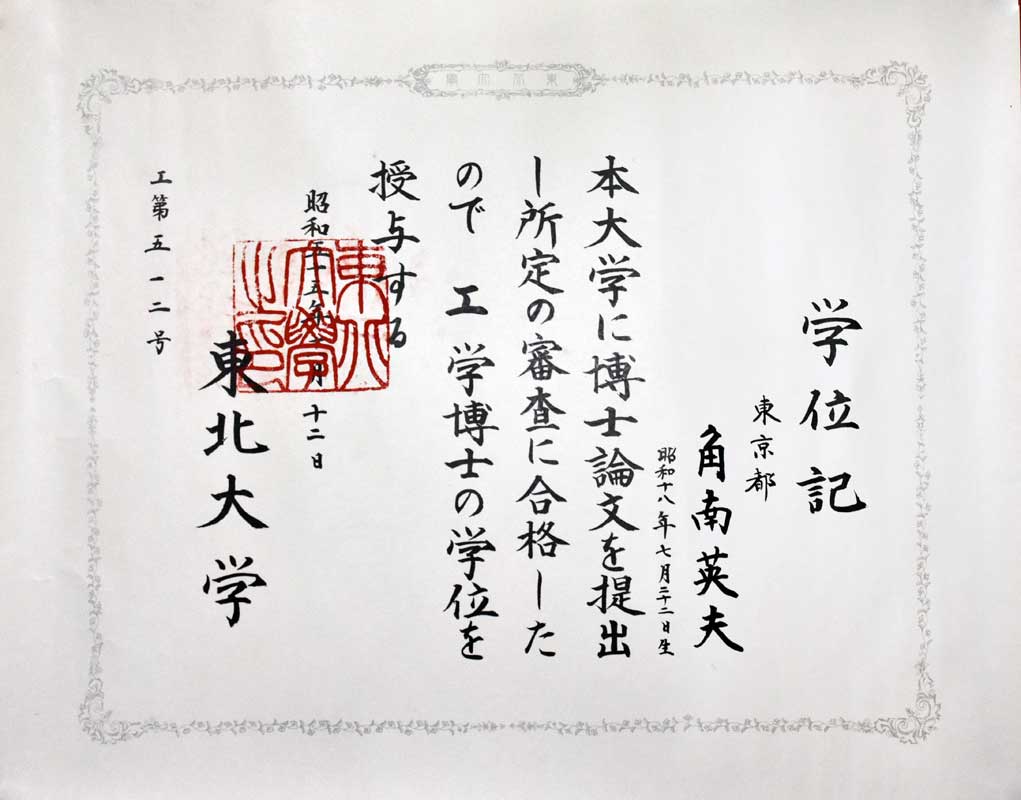 東北大學
学位記
東京都
角南英夫
昭和十八年七月二十二日生
本大学に博士論文を提出
し所定の審査に合格した
ので 工 学博士の学位を
授与する
昭和五十五年 月十二日
東北大学
東北大學之印
工第五一二号